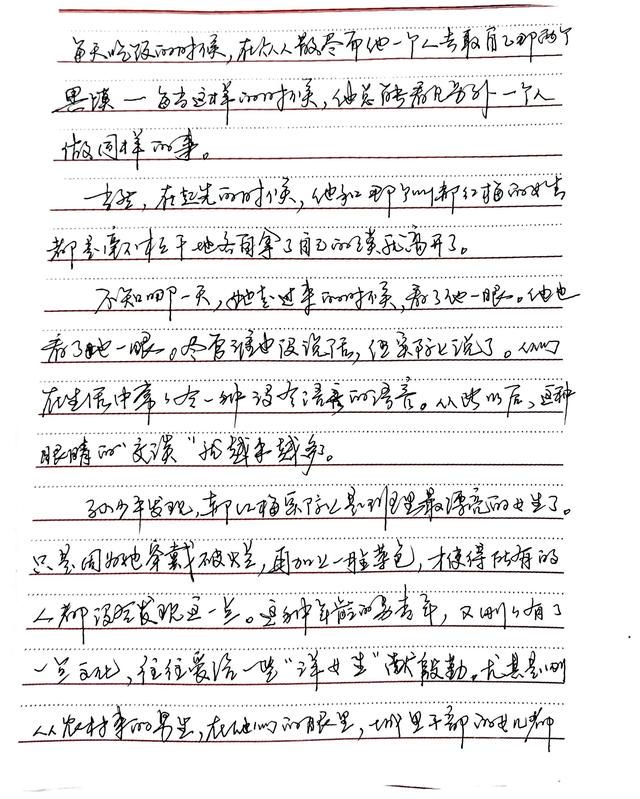 每天吃饭的时候，在众人散尽而他一个人去取自己那两个
黑馍——每当这样的时候，他总能看见另外一个人
做同样的事。
当然，在起先的时候，他和那个叫郝红梅的女生
都是毫不相干地各自拿了自己的馍就离开了。
不知哪一天，她走过来的时候，看了他一眼。他也
看了她一眼。尽管谁也没说话，但实际上说了。人们
在生活中常常有一种没有语言的语言。从此以后，这种
眼睛的“交谈”就越来越多。
孙少平发现，郝红梅实际上是班里最漂亮的女生了。
只是因为她穿戴破烂，再加上一脸菜色，才使得所有的
人都没有发现这一点。这种年龄的男青年，又刚刚有了
一点文化，往往爱给一些“洋女生”献殷勤。尤其是刚
从农村来的男生，在他们的眼里，城里干部的女儿都